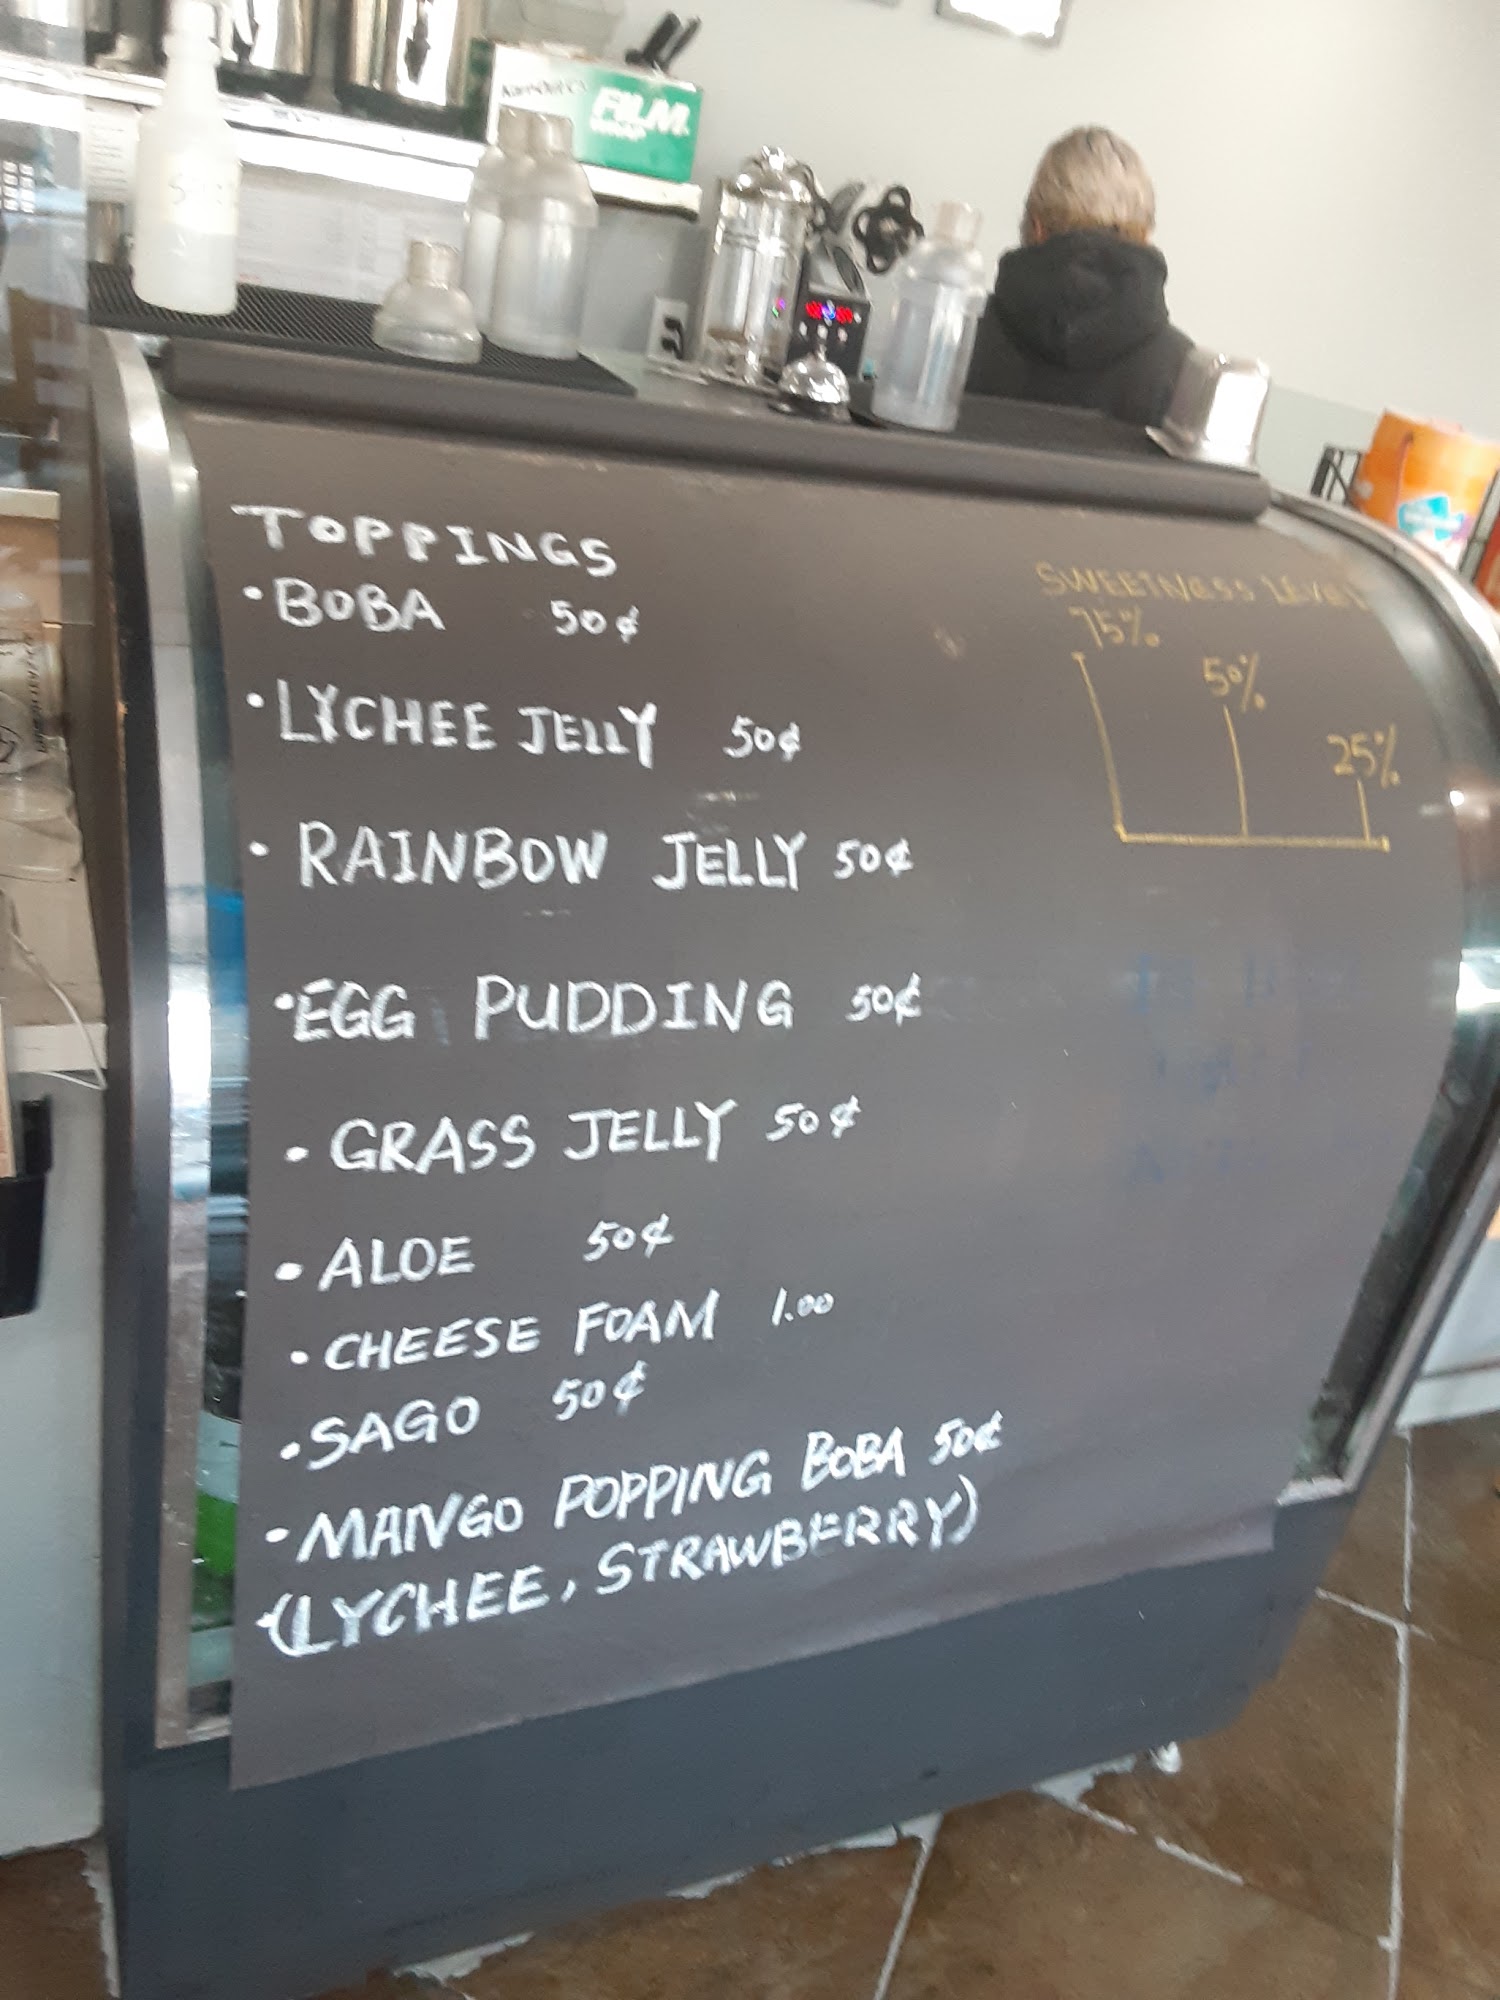 FILM
WRAP
TOPPINGS
• BOBA 50¢
• LYCHEE JELLY 50¢
• RAINBOW JELLY 50¢
• EGG PUDDING 50¢
• GRASS JELLY 50¢
• ALOE 50¢
• CHEESE FOAM 1.00
• SAGO 50¢
• MANGO POPPING BOBA 50¢
(LYCHEE, STRAWBERRY)
SWEETNESS LEVEL
75%
50%
25%